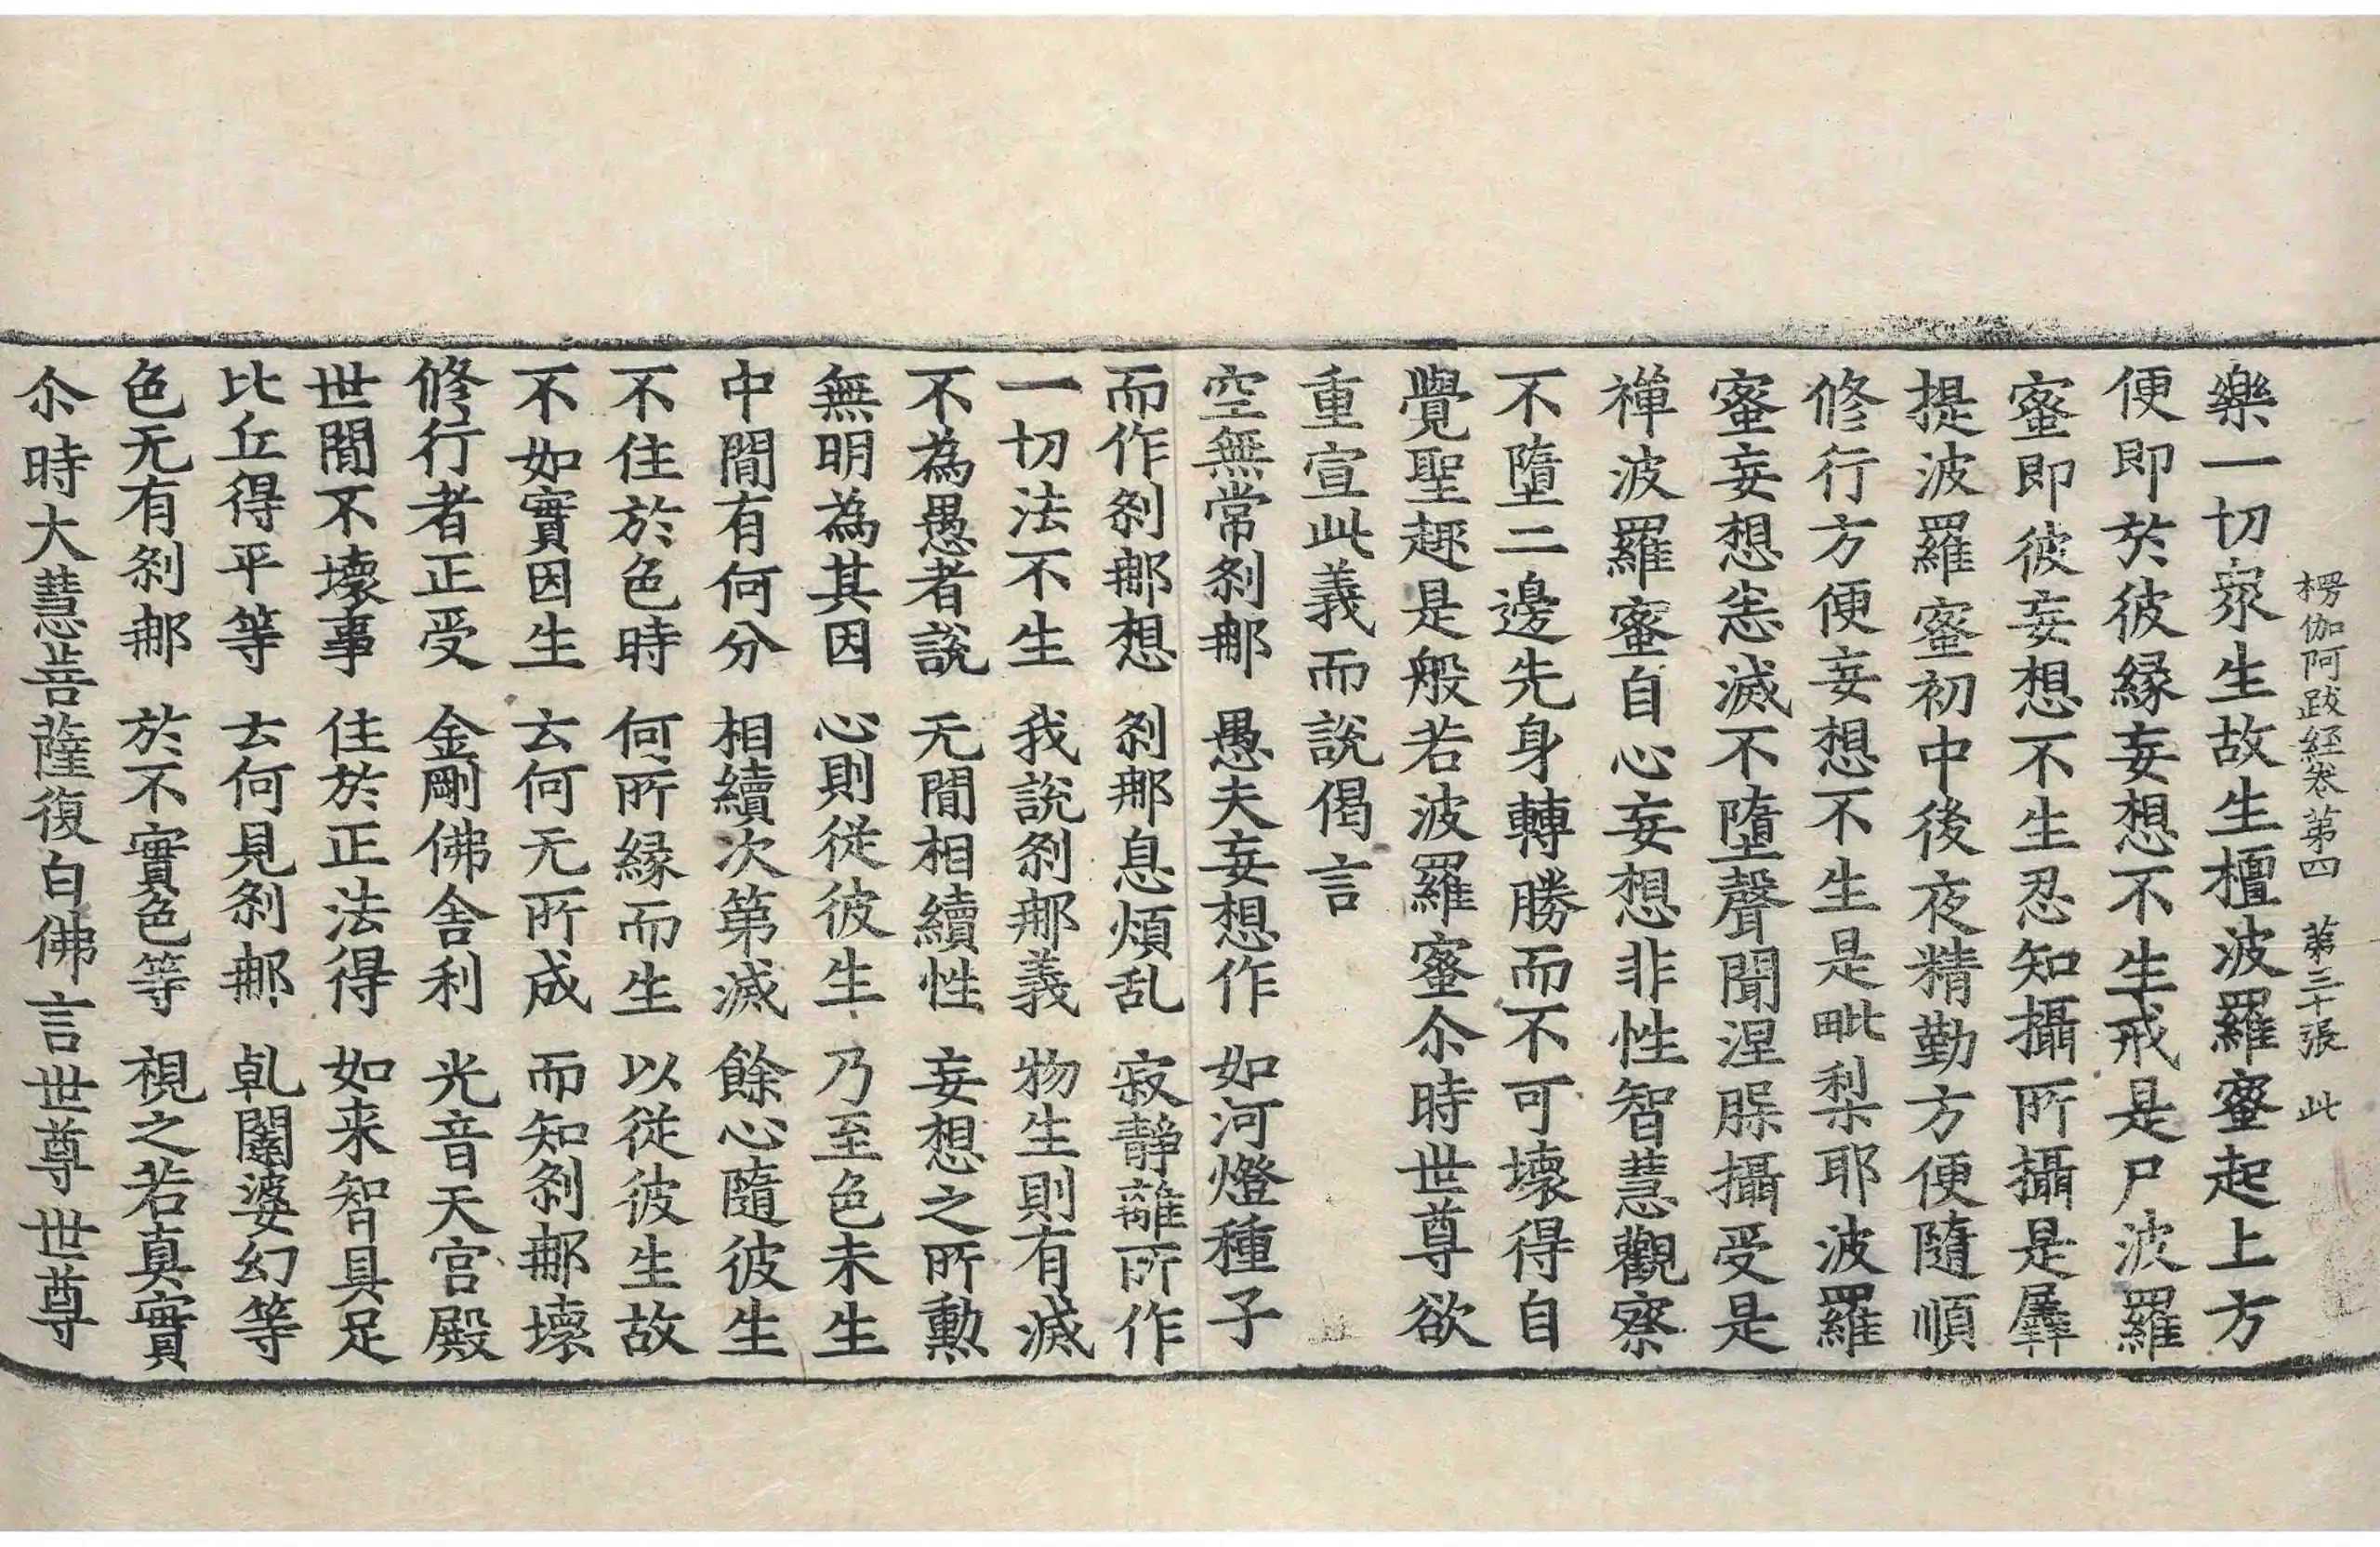 楞伽阿跋経卷第四 第三十張 此
樂一切衆生故生檀波羅蜜起上方
便即於彼縁妄想不生戒是尸波羅
蜜即彼妄想不生忍知攝所攝是羼
提波羅蜜初中後夜精勤方便隨順
修行方便妄想不生是毗梨耶波羅
蜜妄想悉滅不墮聲聞涅槃攝受是
禪波羅蜜自心妄想非性智慧觀察
不墮二邊先身轉勝而不可壞得自
覺聖趣是般若波羅蜜尒時世尊欲
重宣此義而說偈言
空無常刹那 愚夫妄想作 如河燈種子
而作刹那想 刹那息煩乱 寂靜離所作
一切法不生 我說刹那義 物生則有滅
不為愚者說 无間相續性 妄想之所勳
無明為其因 心則從彼生 乃至色未生
中間有何分 相續次第滅 餘心隨彼生
不住於色時 何所縁而生 以從彼生故
不如實因生 云何无所成 而知刹那壞
修行者正受 金剛佛舍利 光音天宮殿
世間不壞事 住於正法得 如来智具足
比丘得平等 云何見刹那 乹闥婆幻等
色无有刹那 於不實色等 視之若真實
尒時大慧菩薩復白佛言世尊世尊